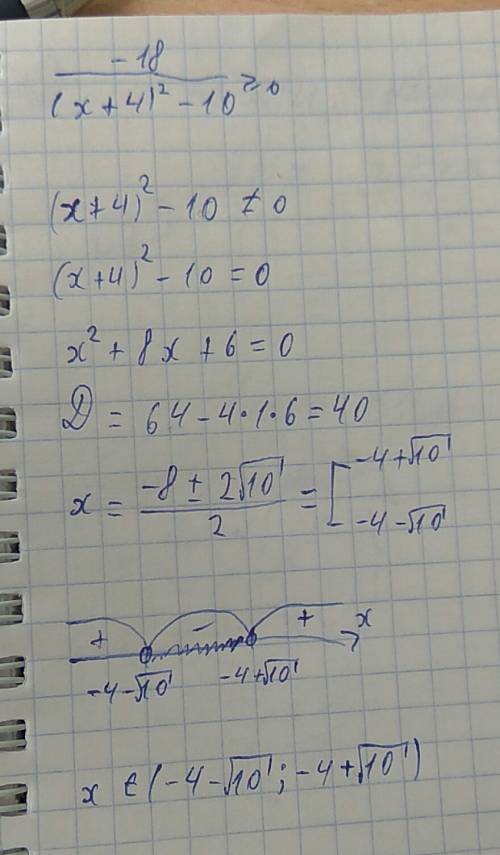 -18
(x+4)² - 10 ≥ 0
(x+4)² - 10 ≠ 0
(x+4)² - 10 = 0
x² + 8x + 6 = 0
D = 64 - 4·1·6 = 40
x = (-8 ± 2√10)/2 = [ -4+√10
-4-√10
+ - + x
-4-√10 -4+√10
x ∈ (-4-√10; -4+√10)